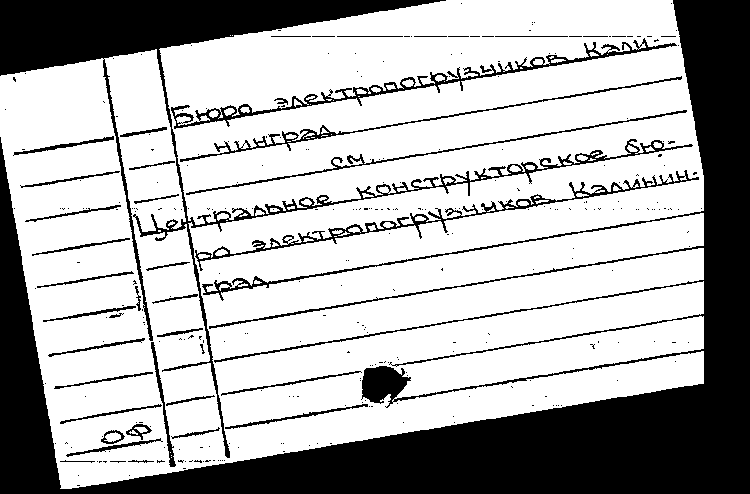 Бюро электропогрузчиков Кали-
нинград.
см.
Центральное конструкторское бю-
ро электропогрузчиков Калинин-
град
ОФ